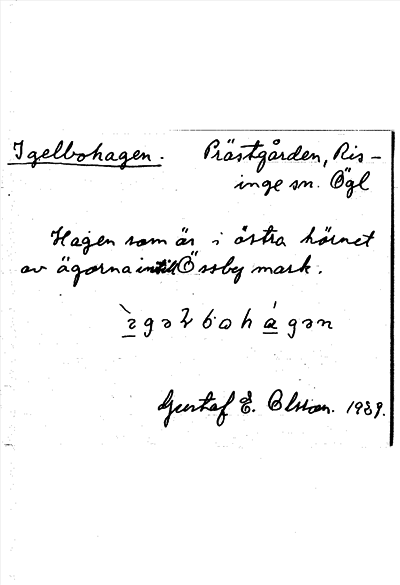 Igelbohagen. Prästgården, Ris-
inge sn. Ögl
Hagen som är i östra hörnet
av ägorna intill Össby mark.
Gustaf E. Olsson. 1939.